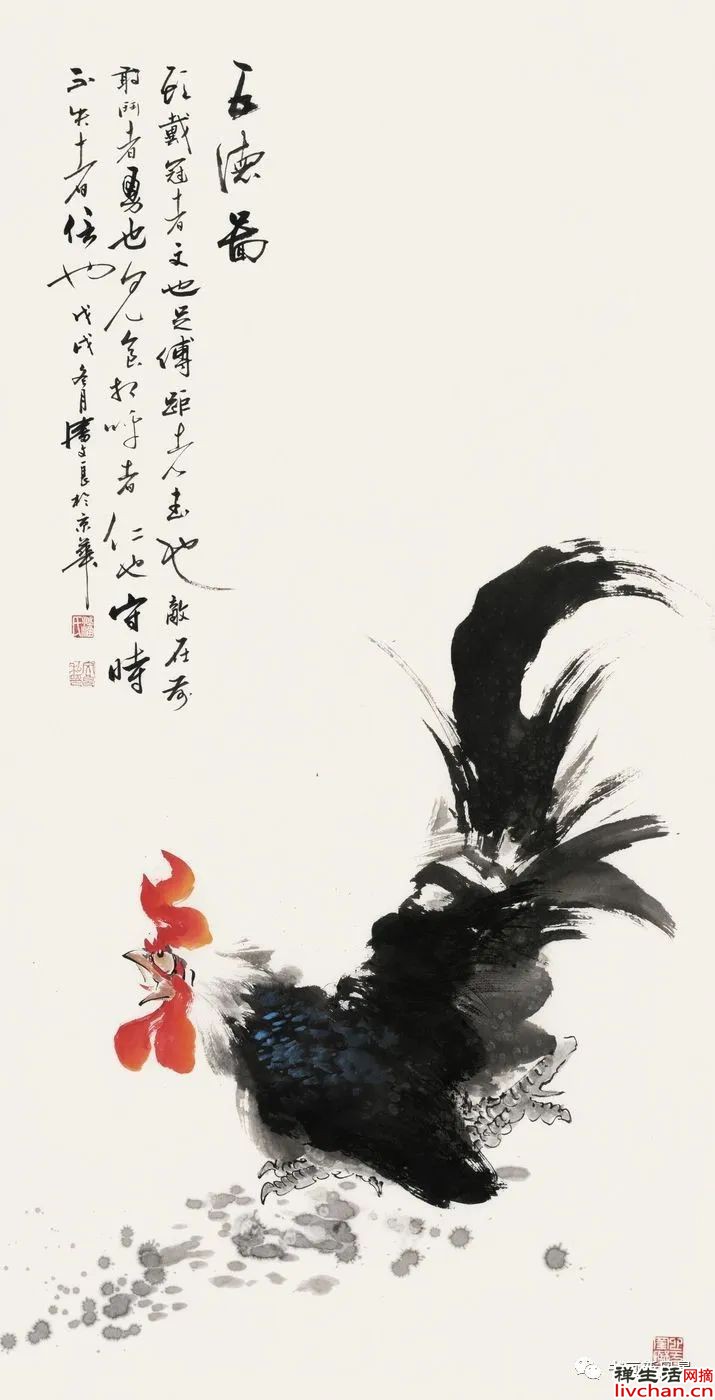 五德圖
頭戴冠者文也足傅距者武也敵在前
敢鬥者勇也見食相呼者仁也守時
不失者信也戊戌冬月潘文良於京華
禅生活网摘
livchan.cn